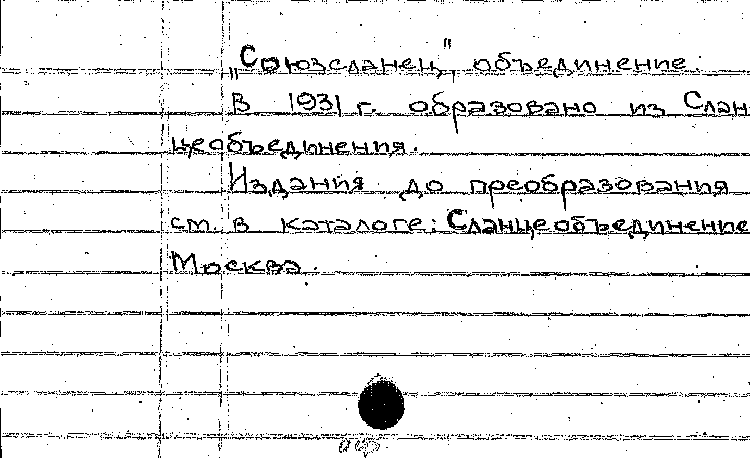 „Союзсланец", объединение.
В 1931 г. образовано из Слан-
цеобъединения.
Издания до преобразования
см. в каталоге: Сланцеобъединение
Москва.